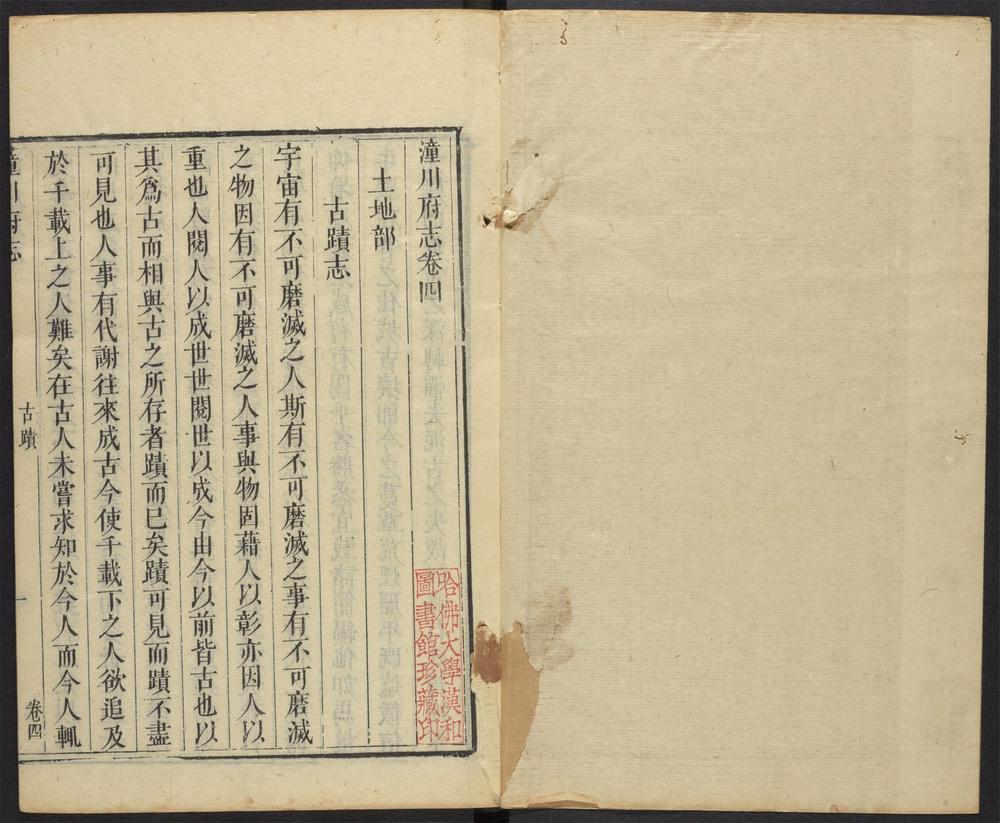 潼川府志卷四
土地部
古蹟志
宇宙有不可磨滅之人斯有不可磨滅之事有不可磨滅
之物因有不可磨滅之人事與物固藉人以彰亦因人以
重也人閱人以成世世閱世以成今由今以前皆古也以
其爲古而相與古之所存者蹟而已矣蹟可見而蹟不盡
可見也人事有代謝往來成古今使千載下之人欲追及
於千載上之人難矣在古人未嘗求知於今人而今人輒
潼川府志
古蹟
一
卷四
哈佛大學漢和
圖書館珍藏印